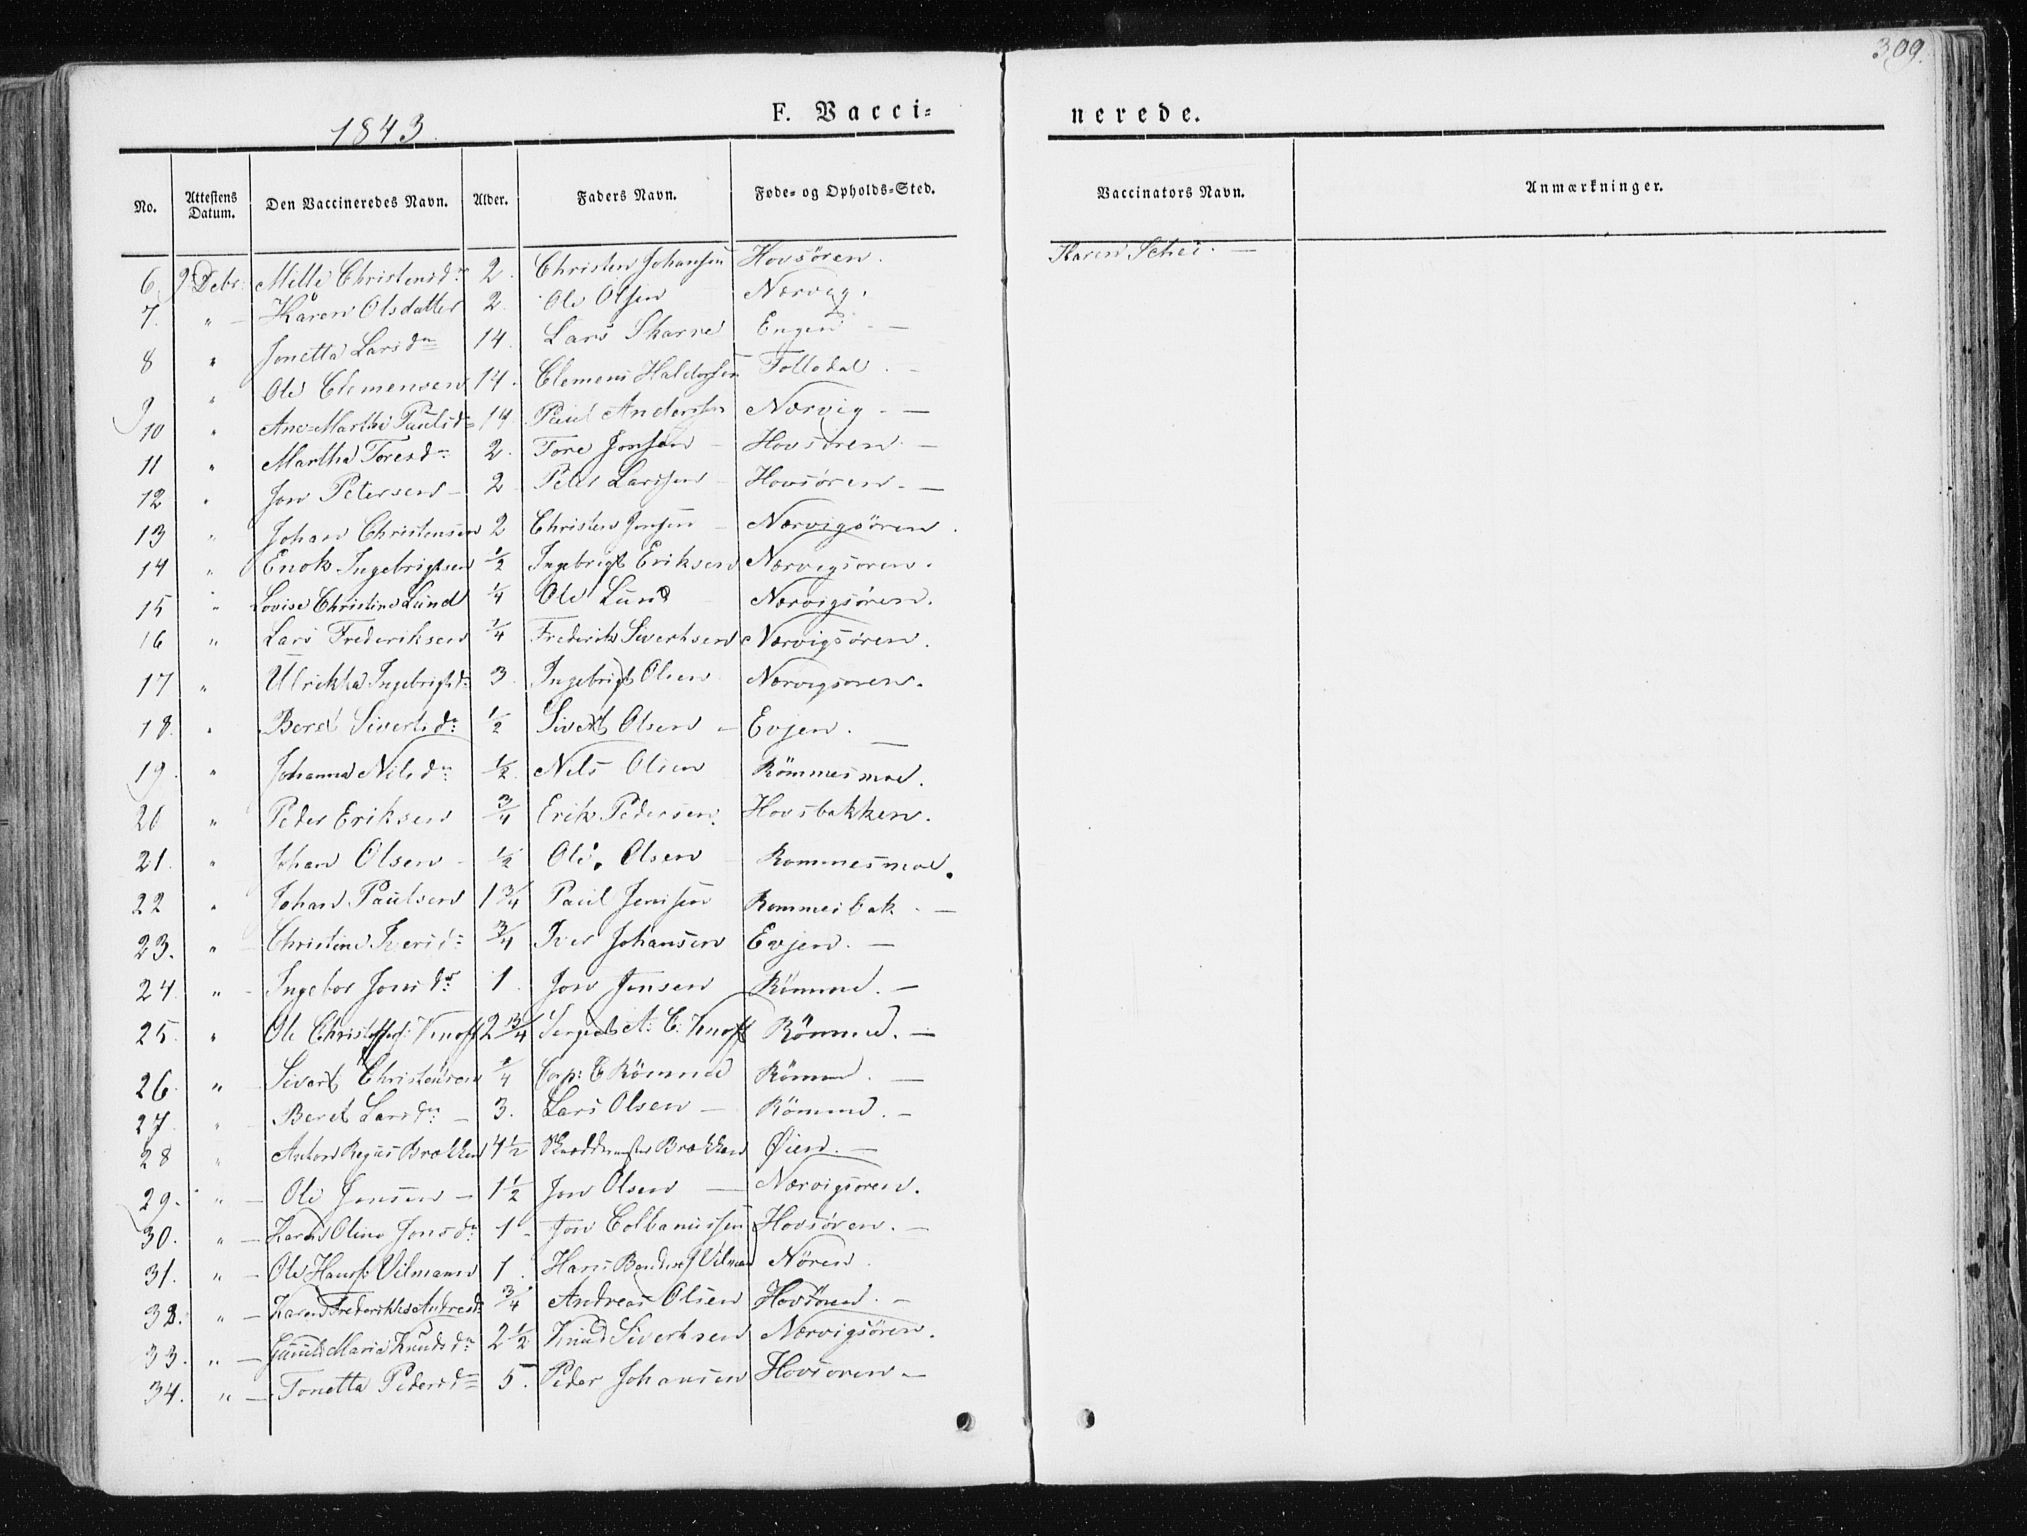 309.
1843.
F. Vacci=
nerede.
No. Attestens Datum. Den Vaccineredes Navn. Alder. Faders Navn. Føde= og Opholds=Sted. Vaccinators Navn. Anmærkninger.
6. 9 Debr: Christensdr 2. Christen Johansen Hovsören. Karen Schei. —
7. " — Karen Olsdatter 2. Ole Olsen Nærvig.
8 " Jonetta Larsdr 14. Lars Engen —
9 " Ole Clemensen 14. Clemens Haldorsen Folledal. —
10 " Ane Martha Paulsd: 14 Paul Andersen Nærvig. —
11 " Martha Toresd: 2. Tore Jonsen — Hovsören. —
12 " Jon Petersen — 2 Peter Larssen — Hovsören. —
13 " Johan Christensen 2 Christen Jensen — Nærvigsören.
14 " Enok Ingebrigtsen ½ Ingebrigt Eriksen Nærvigsören.
15 " Lovise Christine Lund ¼ Ole Lund Nærvigsören.
16 " Lars Frederiksen ¼ Frederik Sivertsen Nærvigsören.
17 " Ulrikka Ingebrigtsd: 3. Ingebrigt Olsen Nærvigsören.
18. " Beret Sivertsd: ½ Sivert Olsen — Evjen. —
19. " Johanna Nilsdr ½ Nils Olsen Römmesmoe.
20 " Peder Eriksen ¾ Erik Pedersen. Hovsbakken.
21. " Johan Olsen — ½ Ole Olsen Rommesmoe.
22 " Johan Paulsen 1¾ Paul Jensen Rommesbak. —
23. " Christine Iversd: ¾ Iver Johansen Evjen. —
24. " — Ingebor Jonsdr 1. Jon Jensen Römme. —
25. " Ole Christophf: Knoff 2¾ Sergeant A: C. Knoff Römme. —
26. " — Sivert Christensen ¼ Corp: C Römme Römme. —
27. " Beret Larsdr — 3. Lars Olsen — Römme. —
28 " Anton Brækken 4½ Brækken Øien. —
29. " — Ole Jonsen — 1½ Jon Olsen — Nærvigsören.
30. " — Karen Oline Jonsdr 1. Jon Colbanussen Hovsören. —
31. " — Ole Hansf: Vilmann 1. Hans Nören.
32. " — Karen Frederikke Andreasd: ¾ Andreas Olsen Hovsören. —
33. " — Maria Knudsdr 2½ Knud Sivertsen Nærvigsören.
34. " — Tonetta Pedersd: 5. Peder Johansen Hovsoren —